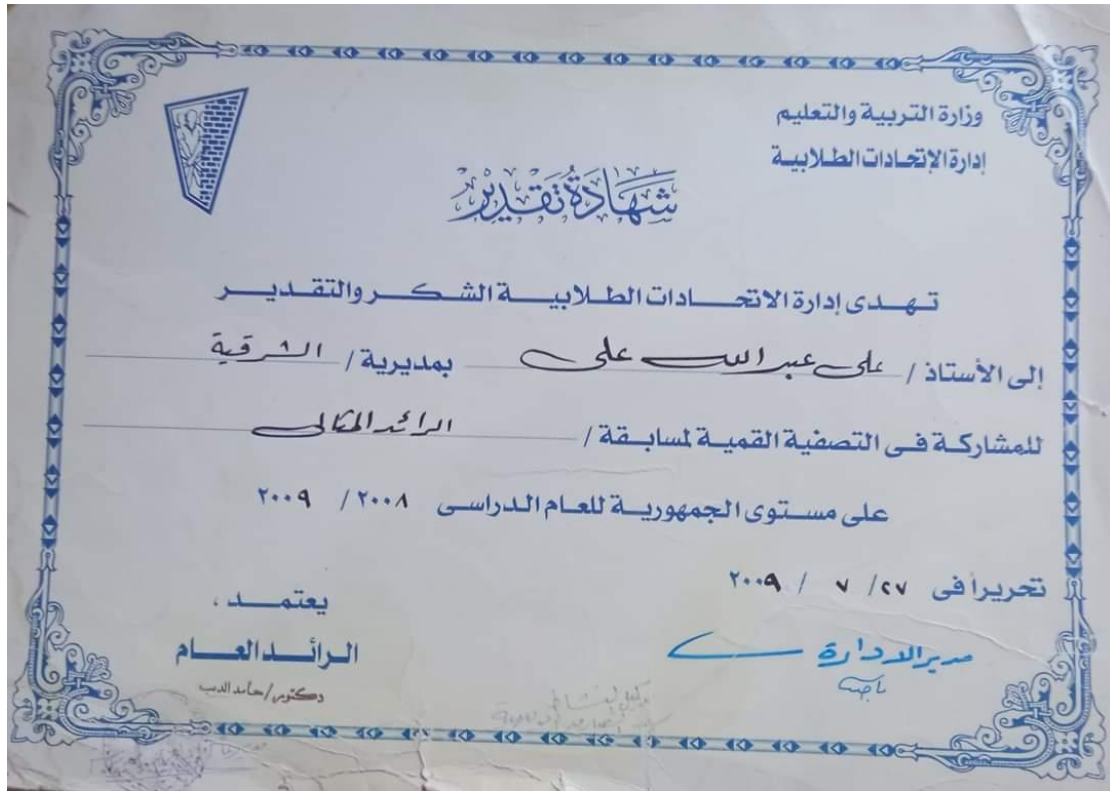 وزارة التربية والتعليم
إدارة الإتحادات الطلابية
شَهَادَةُ تَقْدِيْر
تهدى إدارة الاتحادات الطلابية الشكر والتقدير
إلى الأستاذ / على عبد الله على بمديرية / الشرقية
للمشاركة فى التصفية القمية لمسابقة / الرائد المثالى
على مستوى الجمهورية للعام الدراسى ٢٠٠٨ / ٢٠٠٩
تحريراً فى ٢٧ / ٧ / ٢٠٠٩
يعتمد ،
مدير الادارة
الرائد العام
دكتور / حامد الديب